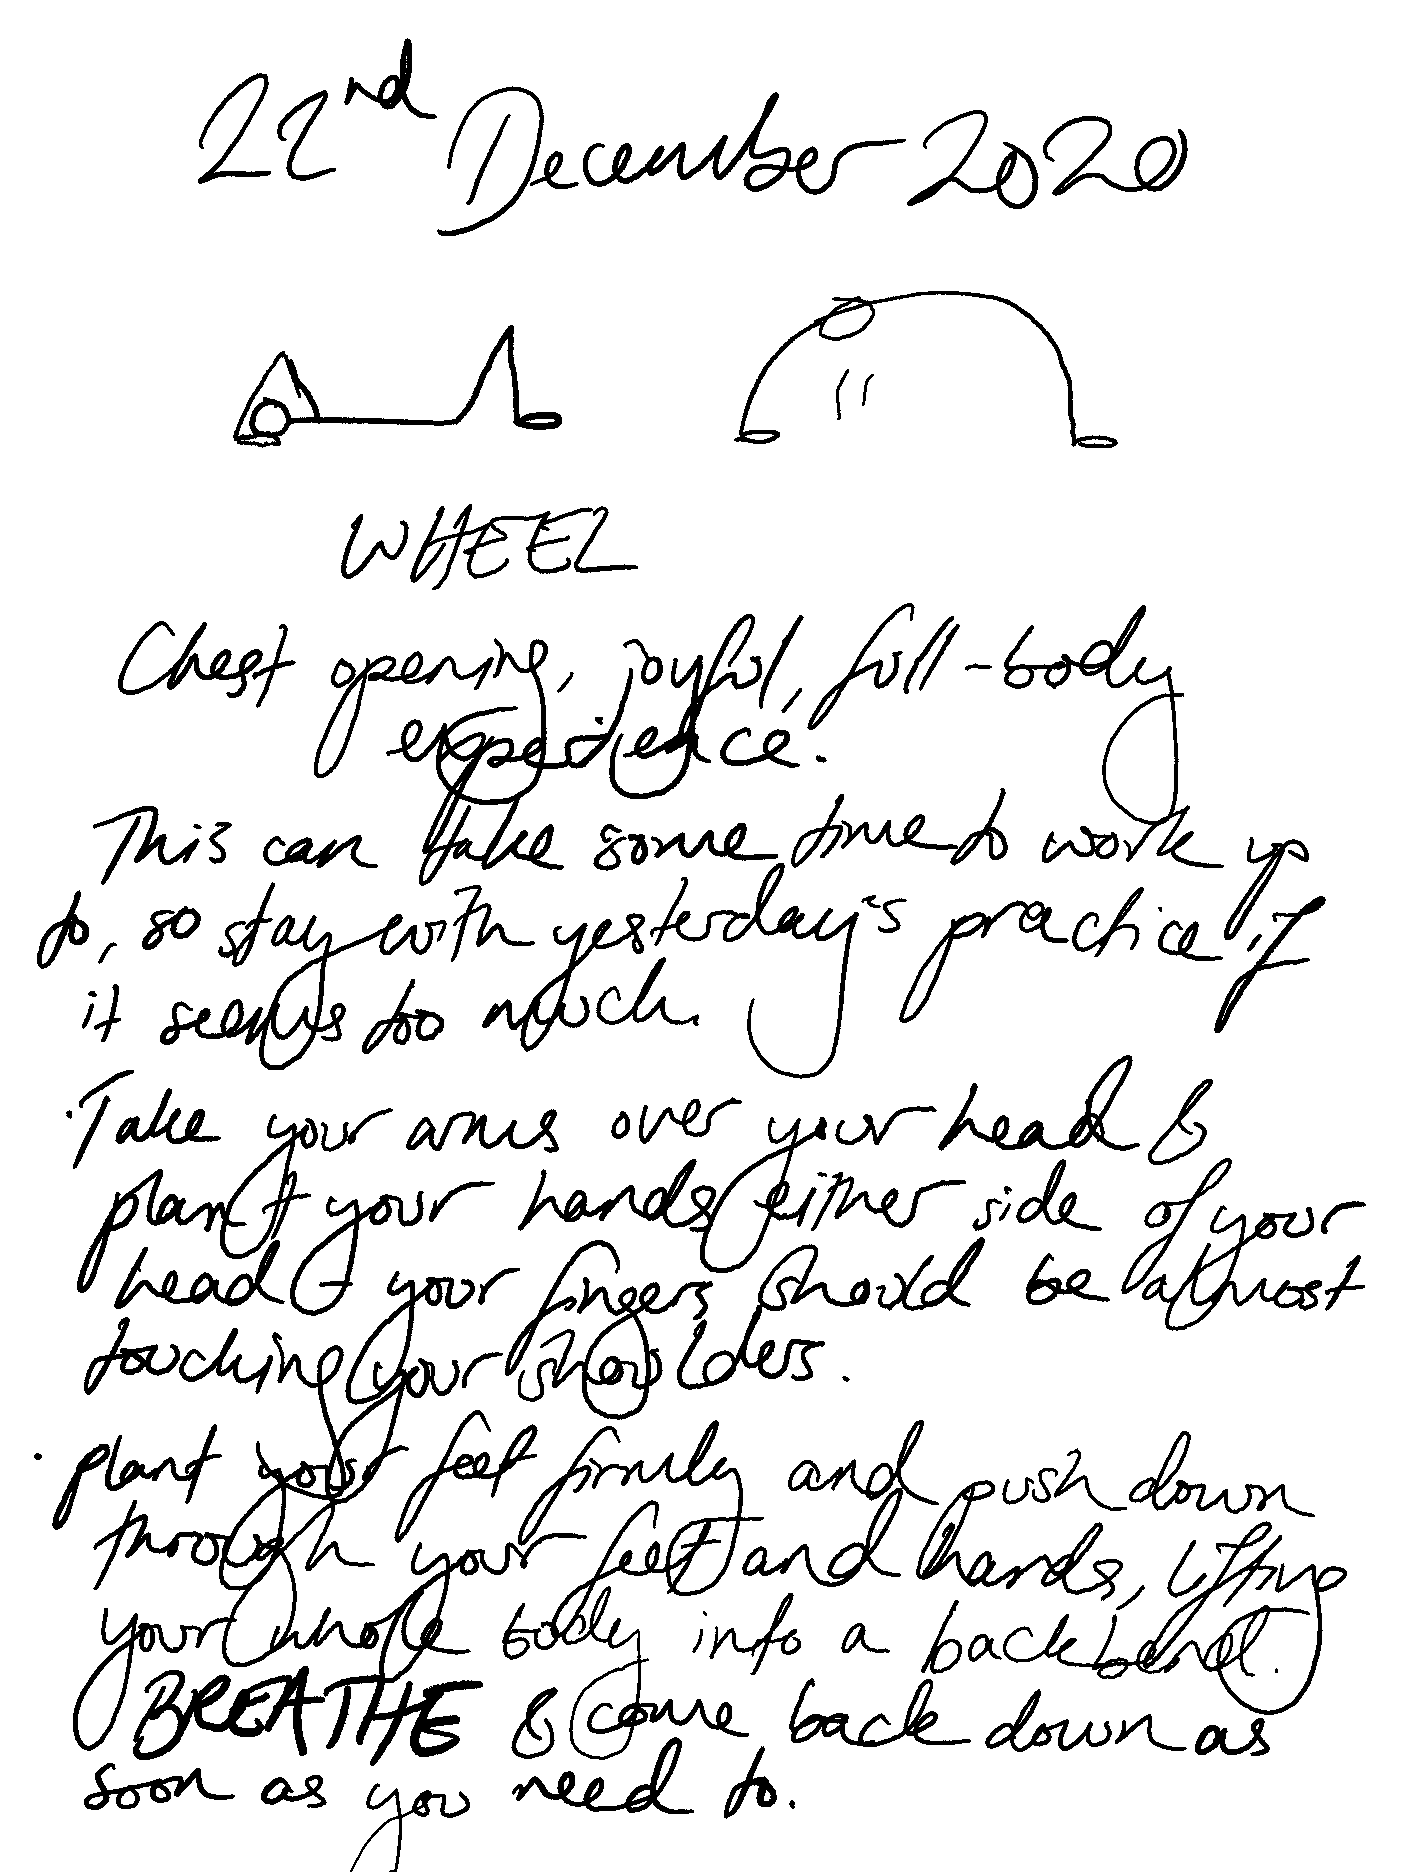 22nd December 2020
WHEEL
Chest opening, joyful, full-body
experience.
This can take some time to work up
to, so stay with yesterday's practice if
it seems too much.
· Take your arms over your head &
plant your hands either side of your
head - your fingers should be almost
touching your shoulders.
· plant your feet firmly and push down
through your feet and hands, lifting
your whole body into a backbend.
BREATHE & come back down as
soon as you need to.